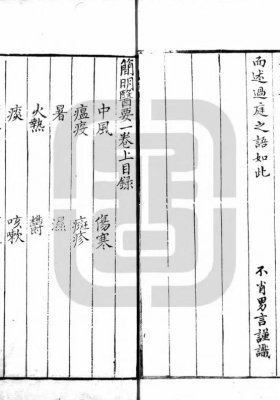 而述過庭之語如此
不肖男言謹識
簡明醫要一卷上目錄
中風 傷寒
瘟疫 癍疹
暑 濕
火熱 鬱
痰 咳嗽